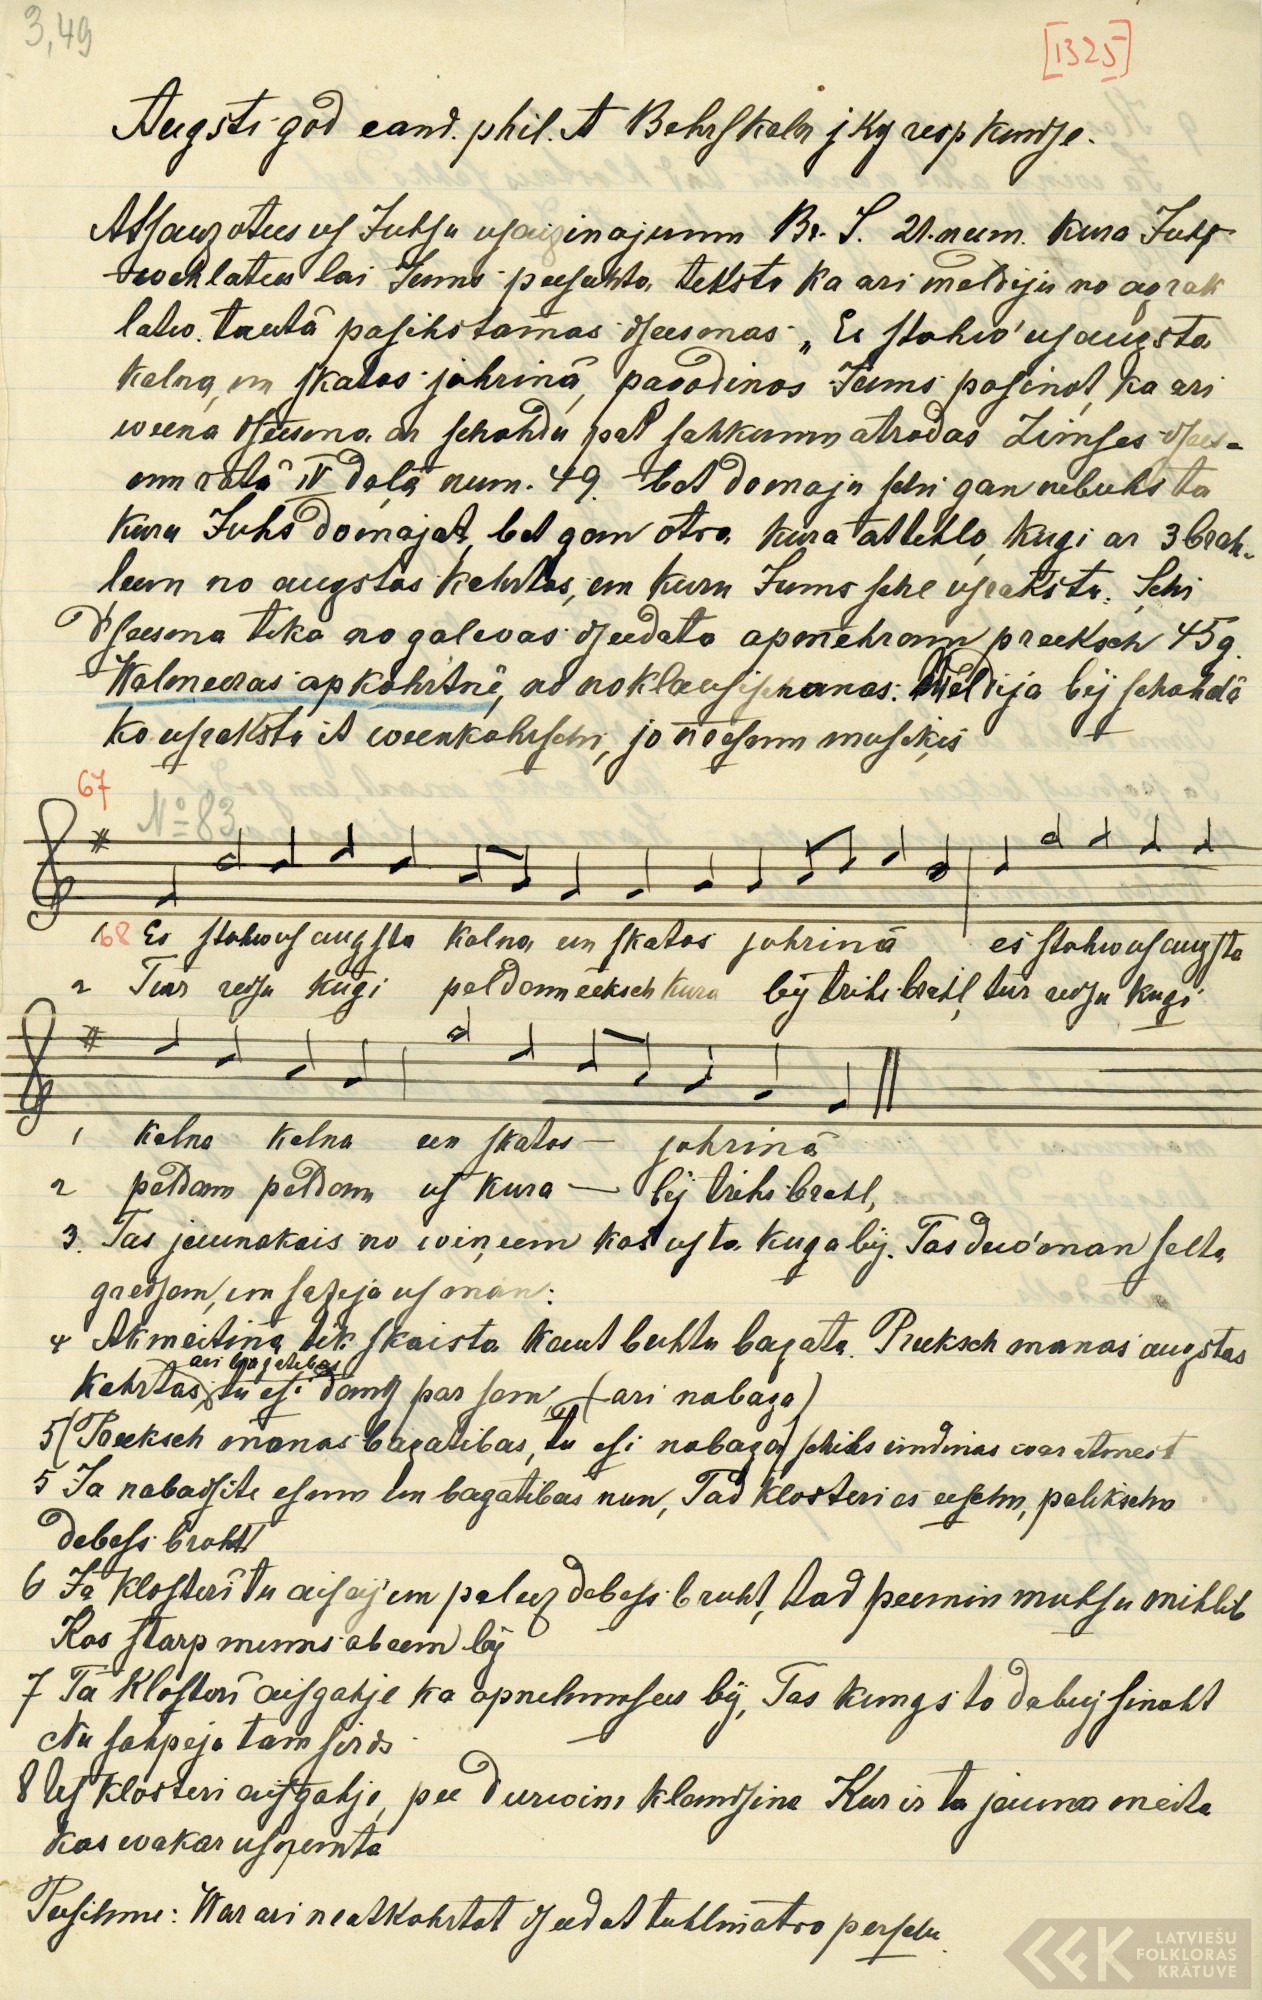 3,49
[1325]
Augsti god cand. phil. A Behrskaln j kg resp kundse.
Atsauzotees us Juhsu usaizinajumu Br. S. 21. num. kura Juhs
wehlatees lai Jums peesuhta teksto ka ari meldiju no agrak
latw. tautā pasihstamas dseesmas „Es stahw' us augsta
kalna, un skatos juhrinā, pagodinos Jums pasinot, ka ari
weena dseesma ar schahdu pat sahkumu atrodas Zimses dsees-
mu rotā IV daļā num. 49. bet domaju schi gan nebuhs ta
kuru Juhs domajat, bet gan otra kura attehlo kugi ar 3 brah-
leem no augstas kahrtas, un kuru Jums sche usrakstu. Schi
dseesma tika no galwas dseedata apmehram preeksch 45 g.
Walmeeras apkahrtnē, no noklausischanas. Meldija bij schahda
ko usrakstu it weenkahrschi, jo neesmu musiķis
67
No 83
1 68 Es stahw us augsta kalna un skatos juhrinā es stahw us augsta
2 Tur redsu kugi peldam eeksch kura bij trihs brahļ, tur redsu kugi
1 kalna kalna un skatos — juhrinā
2 peldam peldam us kura — bij trihs brahļ,
3. Tas jaunakais no wiņeem kas us ta kuga bij. Tas dew' man selta
gredsen, un sazija us man:
4 Ak meitiņa tik skaista kaut buhtu bagata. Preeksch manas augstas
ari bagatibas
kahrtas tu esi daudz par sem, (ari nabaga)
5 (Preeksch manas bagatibas, tu esi nabaga) schihs war atmest
5 Ja nabadsite esmu un bagatibas nau, Tad klosteri es eeschu, palikschu
debess bruht
6 Ja klosterī tu aisej un paleez debess bruht, tad peemin muhsu mihlib
Kas starp mums abeem bij
7 Ta klosterī aisgahje ka apnehmusees bij, Tas kungs to dabuj sinaht
Nu sahpeja tam sirds
8 Us klosteri aisgahje, pee durwim klaudsina Kur ir ta jauna meita
kas wakar usņemta
Peesihme: War ari neatkahrtot dseedot tuhlin otro perschu.
LATVIEŠU
FOLKLORAS
KRĀTUVE